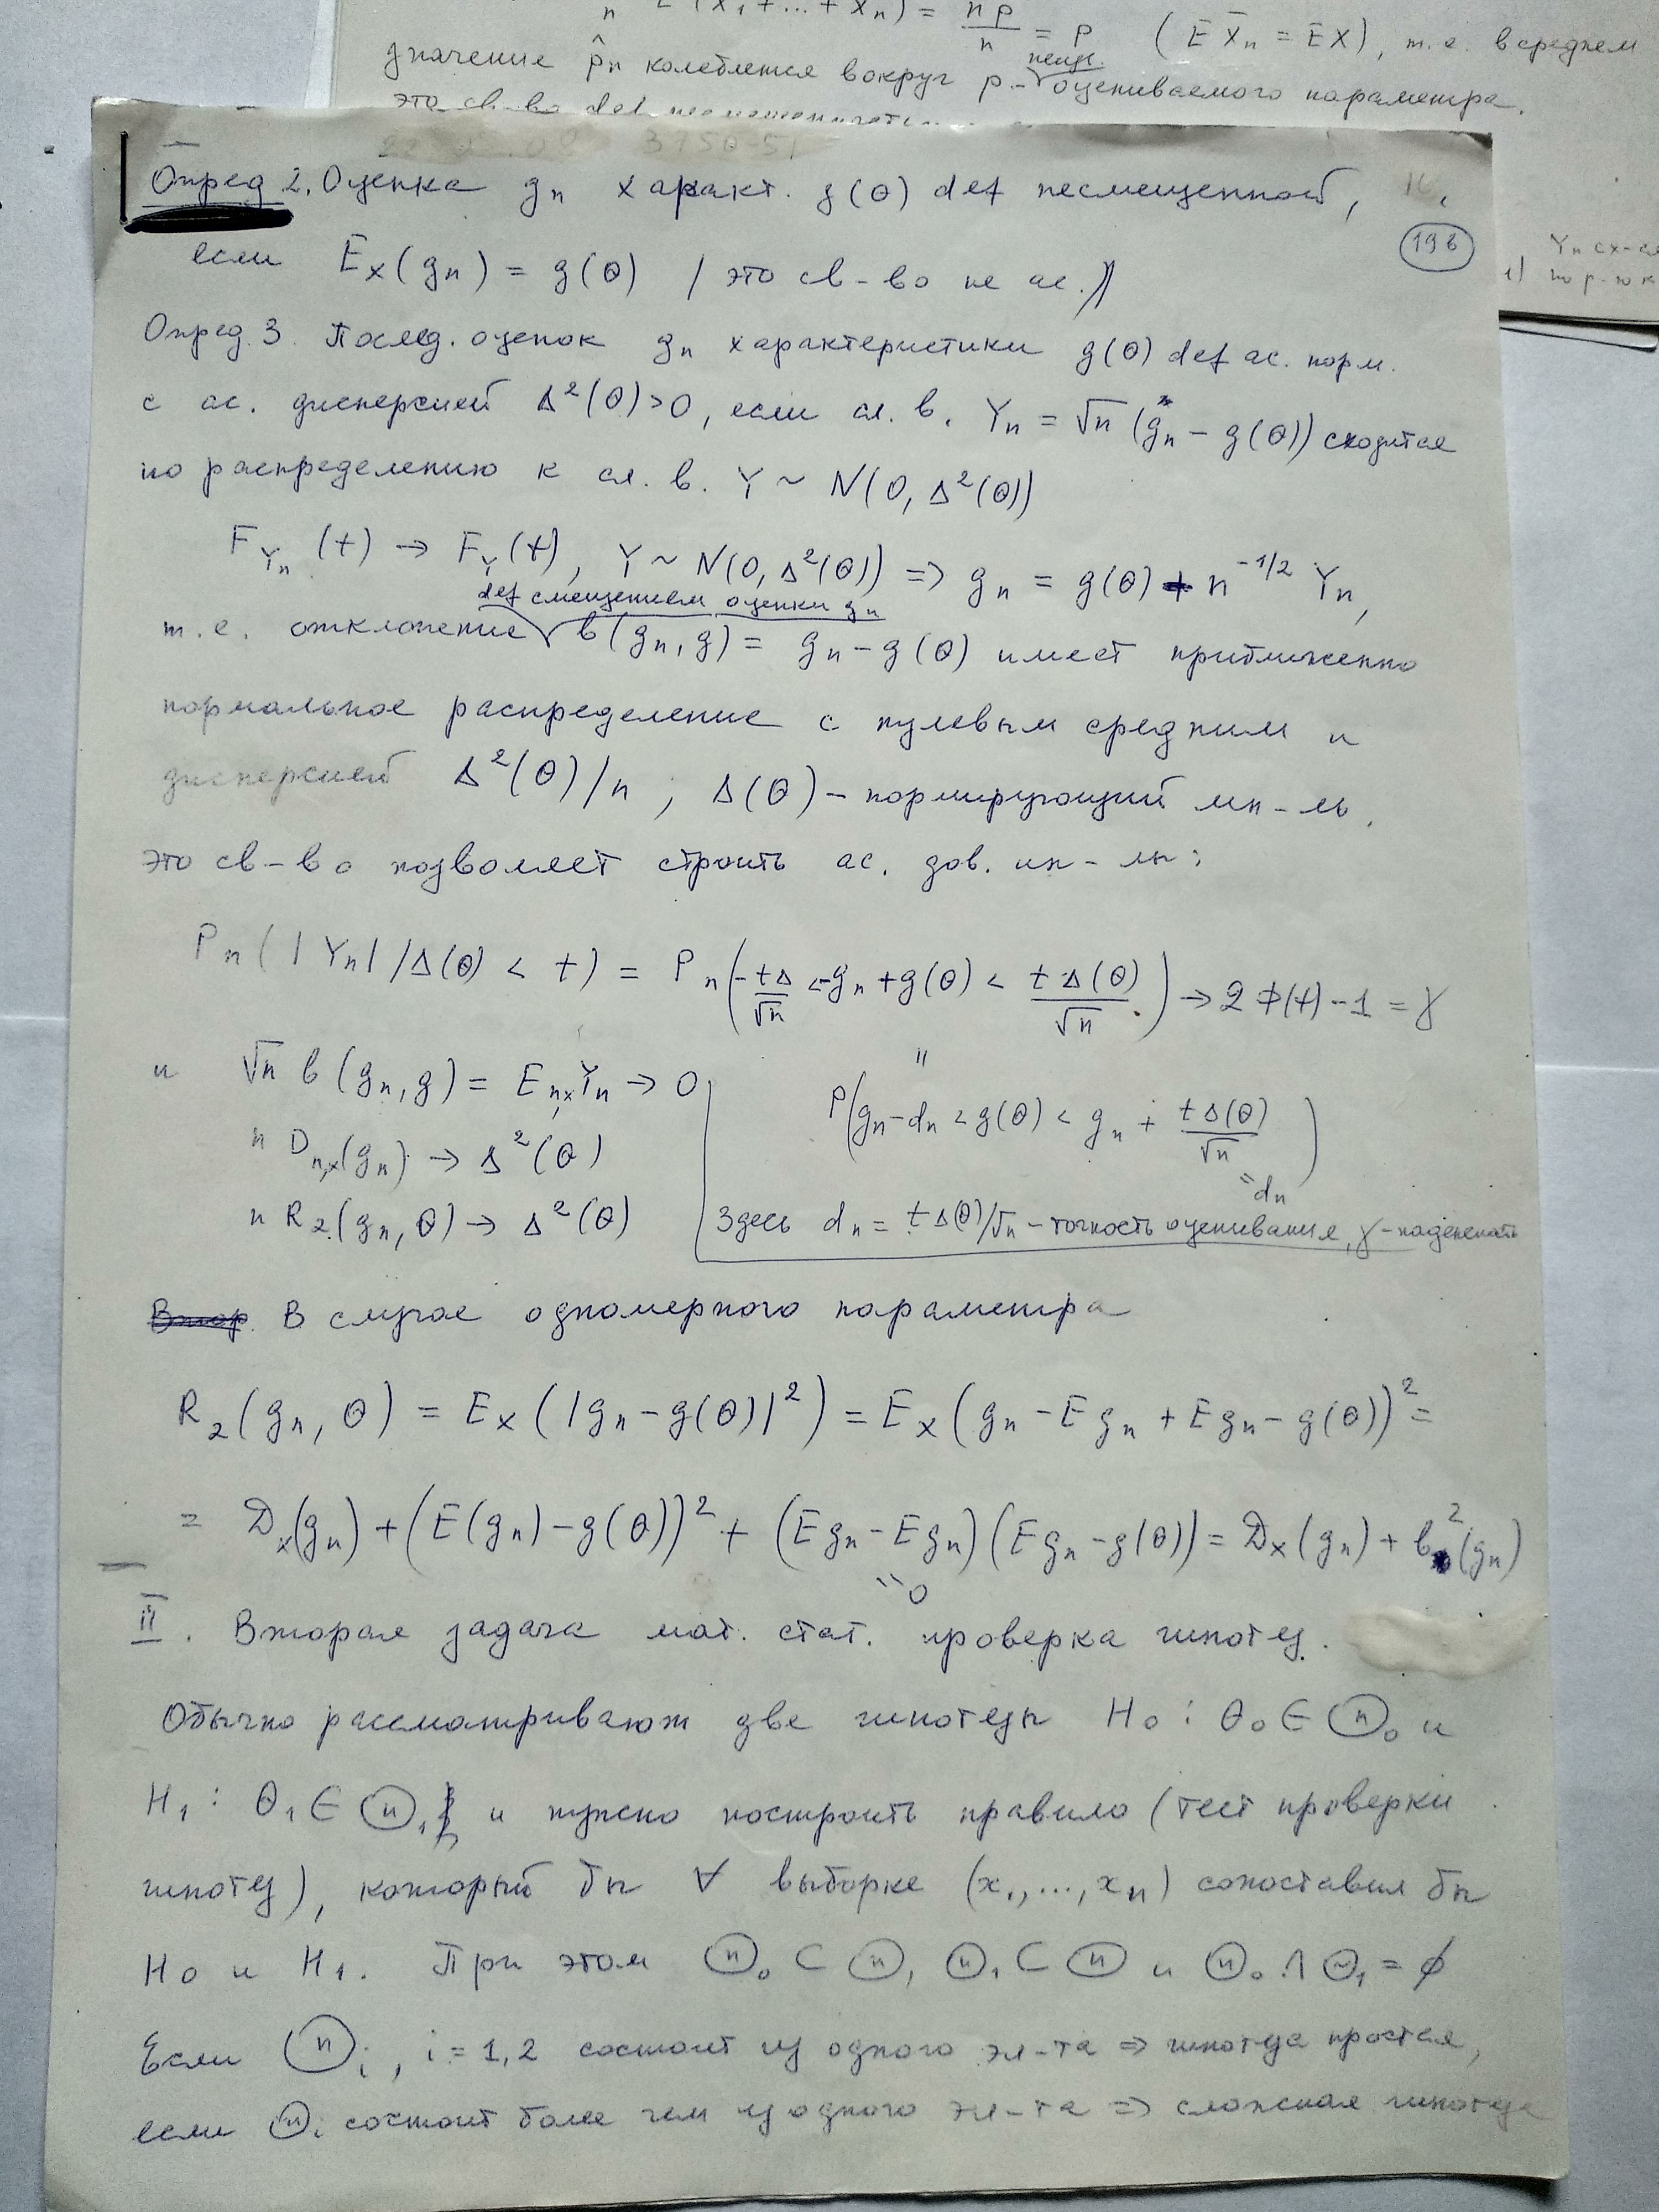 (x₁+...+xₙ) = np/n = p (EX̄ₙ = EX), т.е. в среднем
значение p̂ₙ колеблется вокруг p - неизв. оцениваемого параметра.
это св-во def
Опред 2. Оценка gₙ характ. g(θ) def несмещенной,
19б
если Eₓ(gₙ) = g(θ) / это св-во не ас. //
Yₙ сх-ся
по р-ю к
Опред. 3. Послед. оценок gₙ характеристики g(θ) def ас. норм.
с ас. дисперсией Δ²(θ)>0, если сл. в. Yₙ = √n (gₙ - g(θ)) сходится
по распределению к сл. в. Y ~ N(0, Δ²(θ))
F_Yₙ(t) → F_Y(t), Y ~ N(0, Δ²(θ)) => gₙ = g(θ) + n^(-1/2) Yₙ,
def смещением оценки gₙ
т.е. отклонение b(gₙ, g) = gₙ - g(θ) имеет приближенно
нормальное распределение с нулевым средним и
дисперсией Δ²(θ)/n, Δ(θ) - нормирующий мн-ль.
это св-во позволяет строить ас. дов. ин-лы:
Pₙ(|Yₙ|/Δ(θ) < t) = Pₙ(-tΔ/√n < -gₙ + g(θ) < tΔ(θ)/√n) → 2Φ(t) - 1 = γ
и √n b(gₙ, g) = Eₙ,ₓYₙ → 0
"
P(gₙ - dₙ < g(θ) < gₙ + tΔ(θ)/√n)
n Dₙ,ₓ(gₙ) → Δ²(θ)
= dₙ
n R₂(gₙ, θ) → Δ²(θ)
Здесь dₙ = tΔ(θ)/√n - точность оценивания, γ - надежность
В случае одномерного параметра
R₂(gₙ, θ) = Eₓ(|gₙ - g(θ)|²) = Eₓ(gₙ - Egₙ + Egₙ - g(θ))² =
= Dₓ(gₙ) + (E(gₙ) - g(θ))² + (Egₙ - Egₙ)(Egₙ - g(θ)) = Dₓ(gₙ) + b²(gₙ)
"0
II. Вторая задача мат. стат. проверка гипотез.
Обычно рассматривают две гипотезы H₀: θ₀ ∈ Θ₀ и
H₁: θ₁ ∈ Θ₁ и нужно построить правило (тест проверки
гипотез), который бы ∀ выборке (x₁,...,xₙ) сопоставил бы
H₀ и H₁. При этом Θ₀ ⊂ Θ, Θ₁ ⊂ Θ и Θ₀ ∩ Θ₁ = ∅
Если Θᵢ, i = 1,2 состоит из одного эл-та => гипотеза простая,
если Θᵢ состоит более чем из одного эл-та => сложная гипотеза